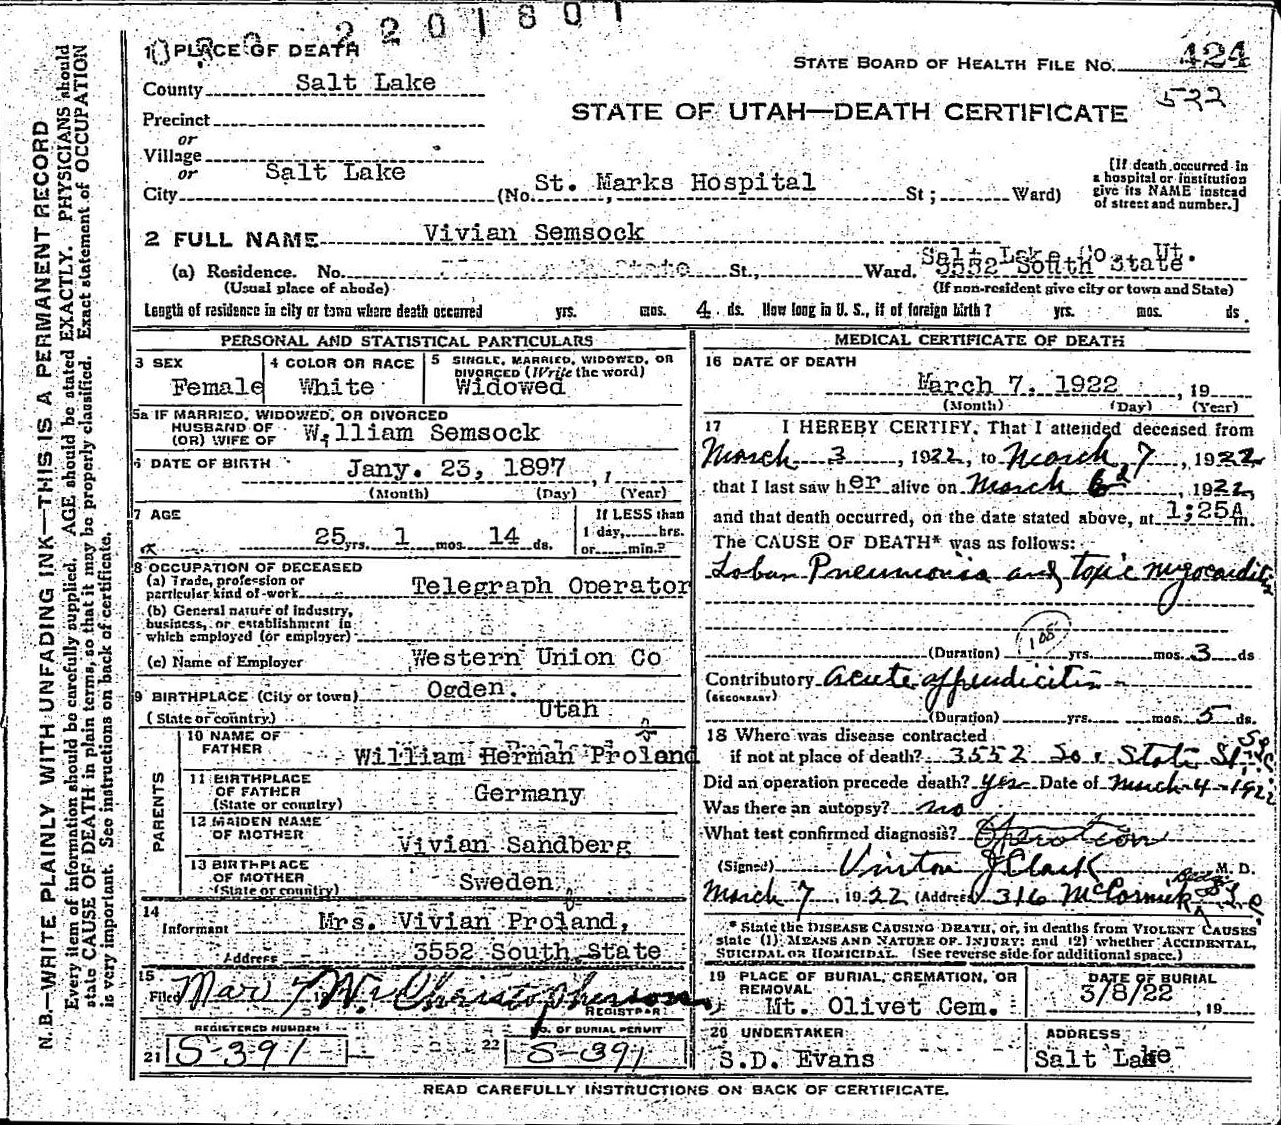 2201801
1 PLACE OF DEATH
STATE BOARD OF HEALTH FILE No. 424
County Salt Lake
522
STATE OF UTAH—DEATH CERTIFICATE
Precinct
or
Village
or
City Salt Lake (No. St. Marks Hospital St; Ward)
[If death occurred in
a hospital or institution
give its NAME instead
of street and number.]
2 FULL NAME Vivian Semsock
(a) Residence. No. State St., Ward. Salt Lake Co Ut.
3552 South State
(Usual place of abode) (If non-resident give city or town and State)
Length of residence in city or town where death occurred yrs. mos. 4 ds. How long in U. S., if of foreign birth? yrs. mos. ds.
PERSONAL AND STATISTICAL PARTICULARS
3 SEX Female
4 COLOR OR RACE White
5 SINGLE, MARRIED, WIDOWED, OR
DIVORCED (Write the word)
Widowed
5a IF MARRIED, WIDOWED, OR DIVORCED
HUSBAND OF
(OR) WIFE OF William Semsock
6 DATE OF BIRTH Jany. 23, 1897
(Month) (Day) (Year)
7 AGE
25 yrs. 1 mos. 14 ds.
If LESS than
1 day, hrs.
or min.?
8 OCCUPATION OF DECEASED
(a) Trade, profession or
particular kind of work Telegraph Operator
(b) General nature of industry,
business, or establishment in
which employed (or employer)
(c) Name of Employer Western Union Co
9 BIRTHPLACE (City or town) Ogden.
(State or country) Utah
PARENTS
10 NAME OF
FATHER William Herman Proland
11 BIRTHPLACE
OF FATHER
(State or country) Germany
12 MAIDEN NAME
OF MOTHER Vivian Sandberg
13 BIRTHPLACE
OF MOTHER
(State or country) Sweden
14
Informant Mrs. Vivian Proland,
Address 3552 South State
15
Filed Mar 7 W. Christopherson
REGISTRAR
REGISTERED NUMBER
21 S-391
NO. OF BURIAL PERMIT
22 S-391
MEDICAL CERTIFICATE OF DEATH
16 DATE OF DEATH
March 7, 1922, 19
(Month) (Day) (Year)
17 I HEREBY CERTIFY, That I attended deceased from
March 3, 1922, to March 7, 1922
that I last saw her alive on March 6, 1922,
and that death occurred, on the date stated above, at 1:25A m.
The CAUSE OF DEATH* was as follows:
Lobar Pneumonia and toxic myocarditis
(Duration) yrs. mos. 3 ds
Contributory acute appendicitis
(SECONDARY)
(Duration) yrs. mos. 5 ds.
18 Where was disease contracted
if not at place of death? 3552 So. State St. S.L.C.
Did an operation precede death? yes Date of March-4-1922
Was there an autopsy? no
What test confirmed diagnosis? Operation
(Signed) Vinton J Clark M. D.
March 7, 1922 (Address 316 McCormick Bldg S.L.C.
* State the DISEASE CAUSING DEATH, or, in deaths from VIOLENT CAUSES
state (1) MEANS AND NATURE OF INJURY; and (2) whether ACCIDENTAL,
SUICIDAL OR HOMICIDAL. (See reverse side for additional space.)
19 PLACE OF BURIAL, CREMATION, OR
REMOVAL
Mt. Olivet Cem.
DATE OF BURIAL
3/8/22, 19
20 UNDERTAKER
S.D. Evans
ADDRESS
Salt Lake
READ CAREFULLY INSTRUCTIONS ON BACK OF CERTIFICATE.
N.B.—WRITE PLAINLY WITH UNFADING INK—THIS IS A PERMANENT RECORD
Every item of information should be carefully supplied. AGE should be stated EXACTLY. PHYSICIANS should
state CAUSE OF DEATH in plain terms, so that it may be properly classified. Exact statement of OCCUPATION
is very important. See instructions on back of certificate.